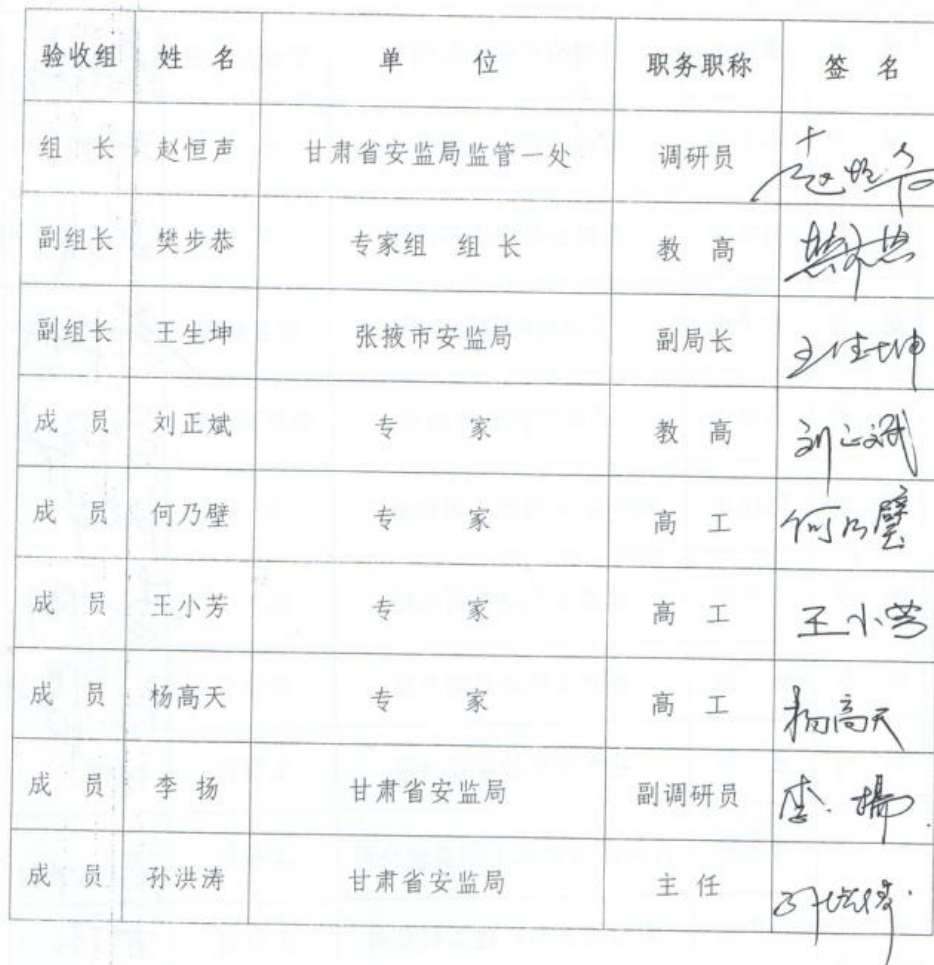 验收组 姓 名 单 位 职务职称 签 名
组 长 赵恒声 甘肃省安监局监管一处 调研员 赵恒声
副组长 樊步恭 专家组 组 长 教 高 樊步恭
副组长 王生坤 张掖市安监局 副局长 王生坤
成 员 刘正斌 专 家 教 高 刘正斌
成 员 何乃壁 专 家 高 工 何乃璧
成 员 王小芳 专 家 高 工 王小芳
成 员 杨高天 专 家 高 工 杨高天
成 员 李 扬 甘肃省安监局 副调研员 李 扬
成 员 孙洪涛 甘肃省安监局 主 任 孙洪涛